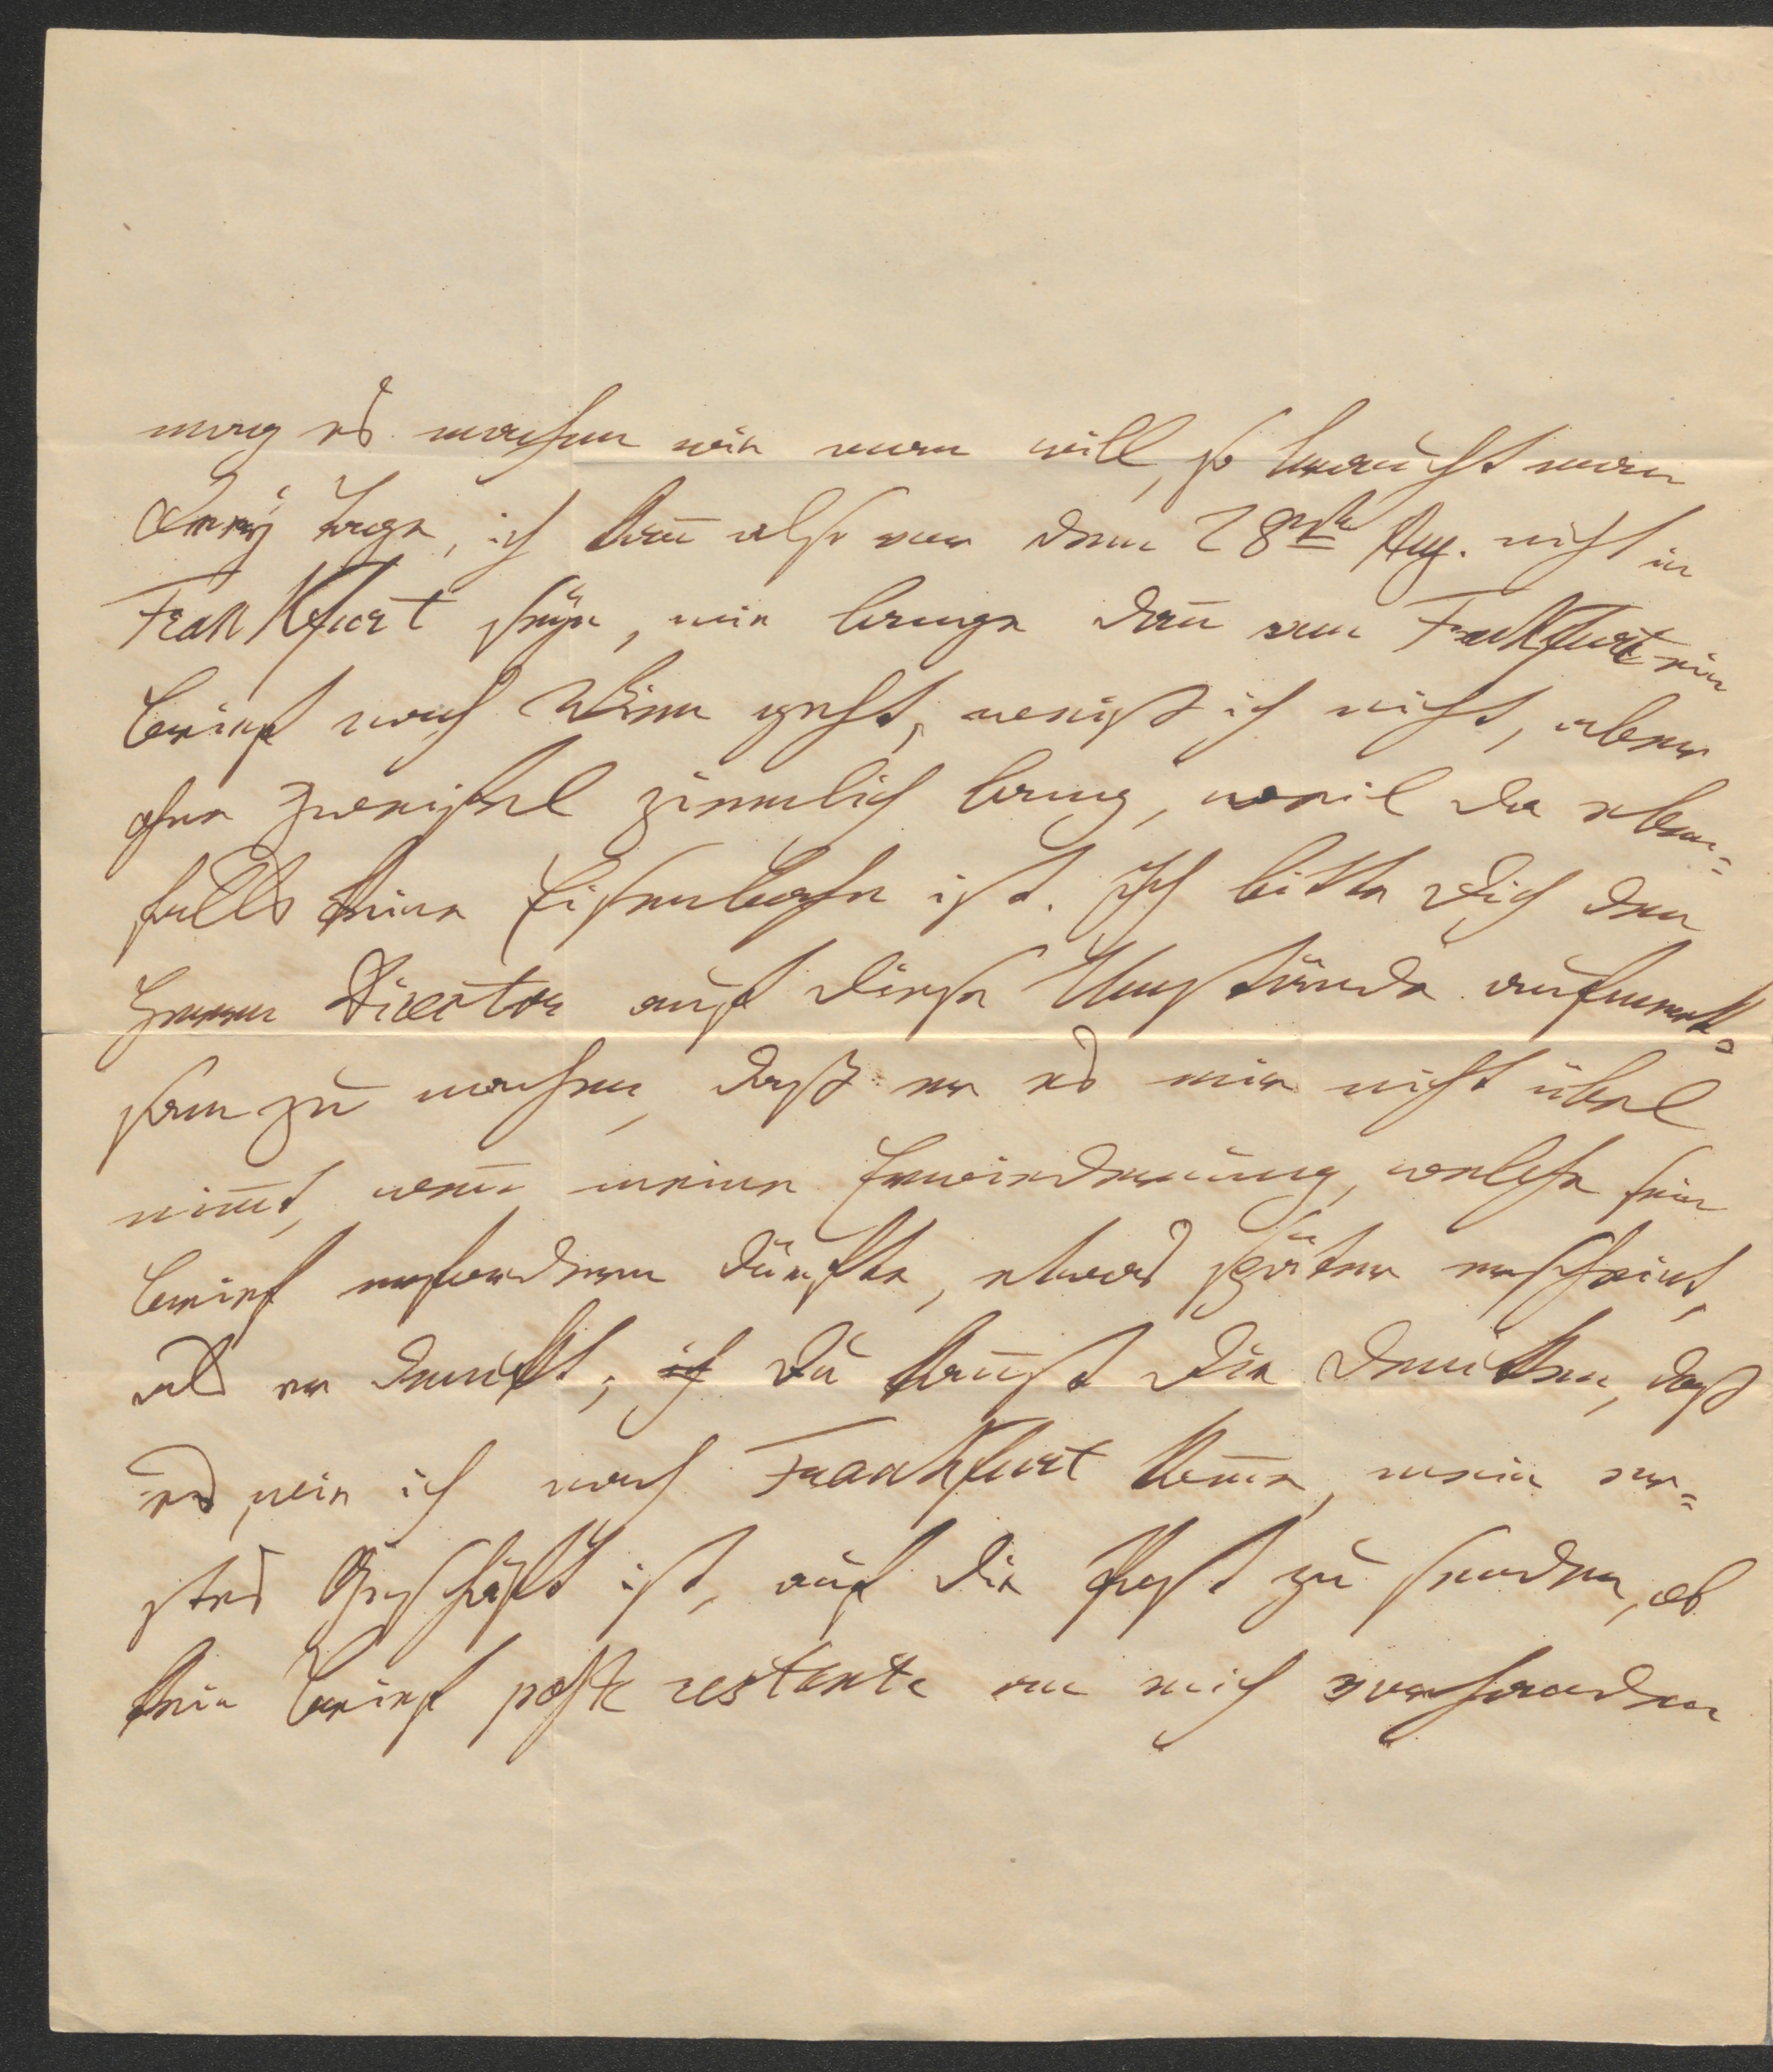 mag es machen wie man will, so braucht man
drey Tage, ich kan̄ also vor dem 28sten Aug. nicht in
Frankfurt seÿn, wie lange dan̄ von Frankfurt ein
Brief nach Wien geht, weiß ich nicht, aber
ohne Zweifel ziemlich lang, weil da eben=
falls keine Eisenbahn ist. Ich bitte dich den
Herrn Director auf diese Umstände aufmerk=
sam zu machen, daß er es mir nicht übel
nim̄t, wen̄ meine Erwiederung, welche sein
Brief erfordern dürfte, etwas später erscheint,
als er denckt; ich du kan̄st dir denken, daß
es, wie ich nach Frankfurt kom̄e, mein er=
stes Geschäft ist, auf die Post zu senden, ob
kein Brief poste restante an mich vorhanden